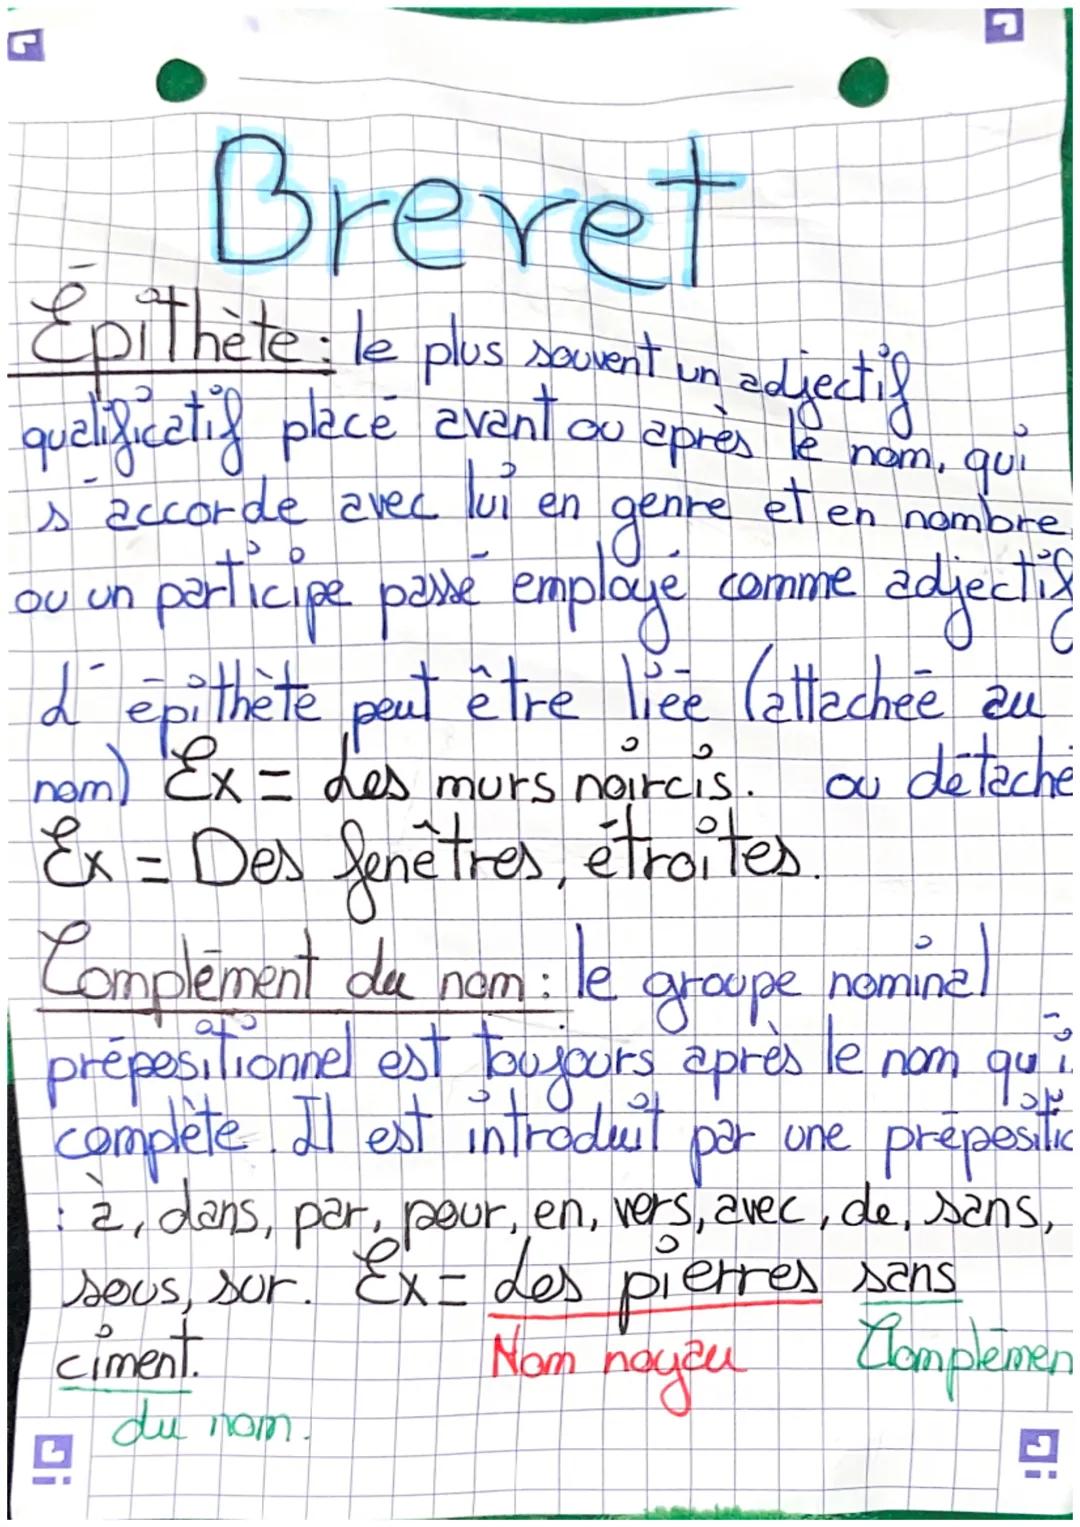 Brevet
Épithète : le plus souvent un adjectif
qualificatif placé avant ou après le nom, qui
s'accorde avec lui en genre et en nombre
ou un participe passé employé comme adjectif
L'épithète peut être liée (attachée au
nom) Ex = Les murs noircis. ou détaché
Ex = Des fenêtres, étroites.
Complément du nom : le groupe nominal
prépositionnel est toujours après le nom qu'i
complète. Il est introduit par une prépositio
: à, dans, par, pour, en, vers, avec, de, sans,
sous, sur. Ex = des pierres sans
ciment. Nom noyau Complémen
du nom.